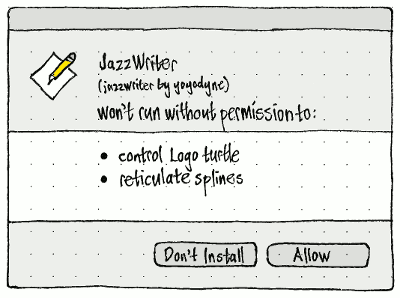 JazzWriter
(jazzwriter by yoyodyne)
won't run without permission to:
• control Logo turtle
• reticulate splines
Don't Install
Allow